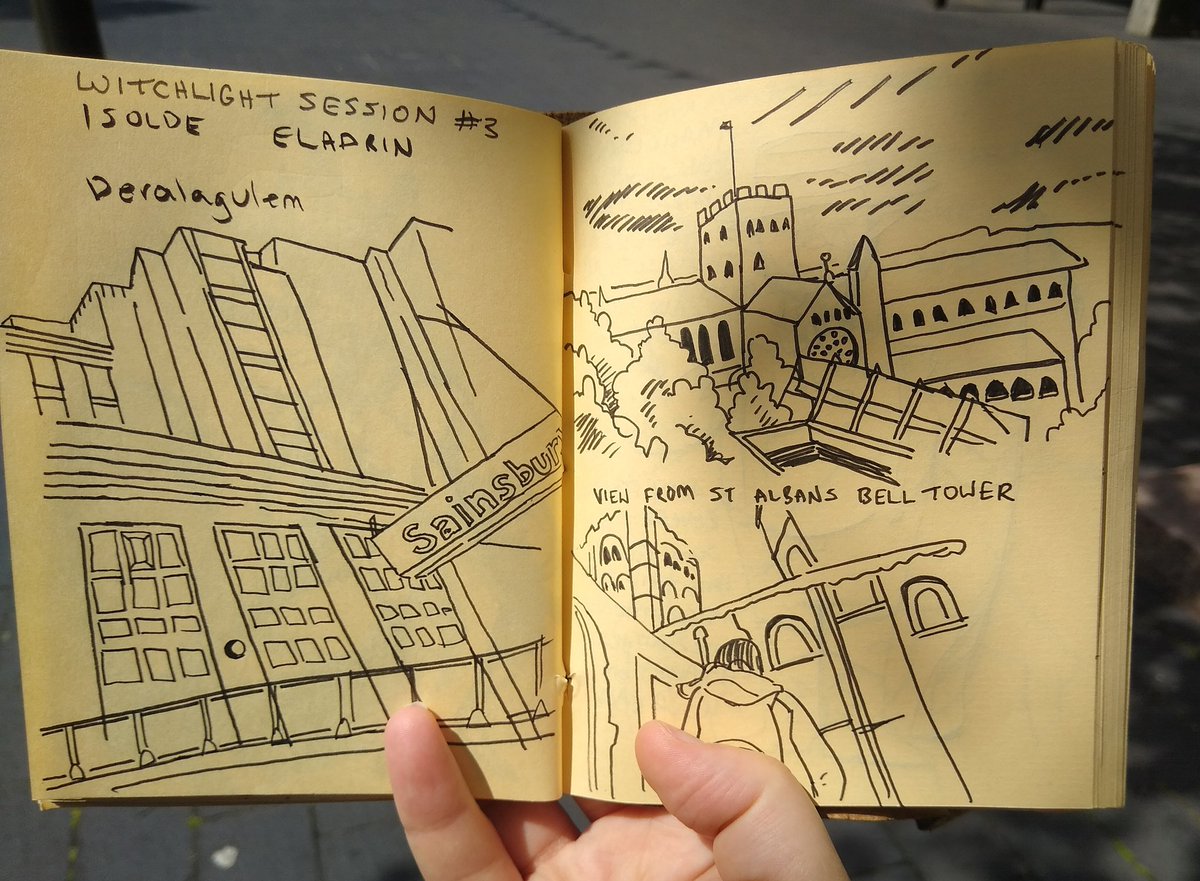 WITCHLIGHT SESSION #3
ISOLDE ELADRIN
Deralagulem
Sainsbury
VIEW FROM ST ALBANS BELL TOWER